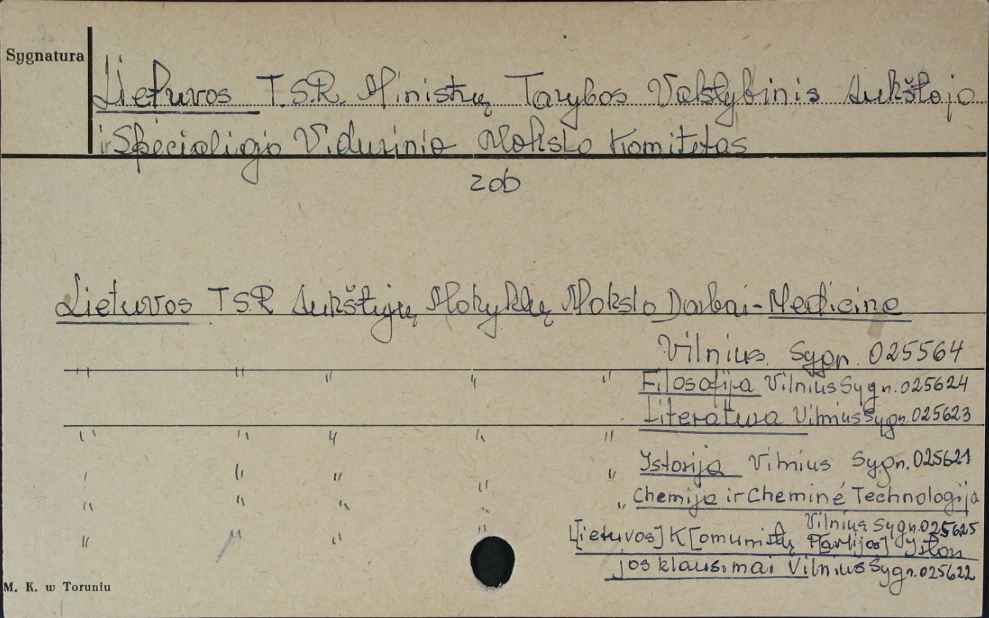 Sygnatura
Lietuvos TSR. Ministrų Tarybos Valstybinis Aukštojo
ir Specialiojo Vidurinio Mokslo Komitetas
zob
Lietuvos TSR Aukštųjų Mokyklų Mokslo Darbai - Medicina
Vilnius. Sygn. 025564
" " " " " Filosofija Vilnius Sygn. 025624
Literatura Vilnius Sygn. 025623
" " " " "
" " " " " Istorija Vilnius Sygn. 025621
" " " " Chemija ir Cheminé Technologija
Vilnius Sygn. 025625
" " " " L[ietuvos] K[omunistų Partijos] Istor
jos klausimai Vilnius Sygn. 025622
M. K. w Toruniu